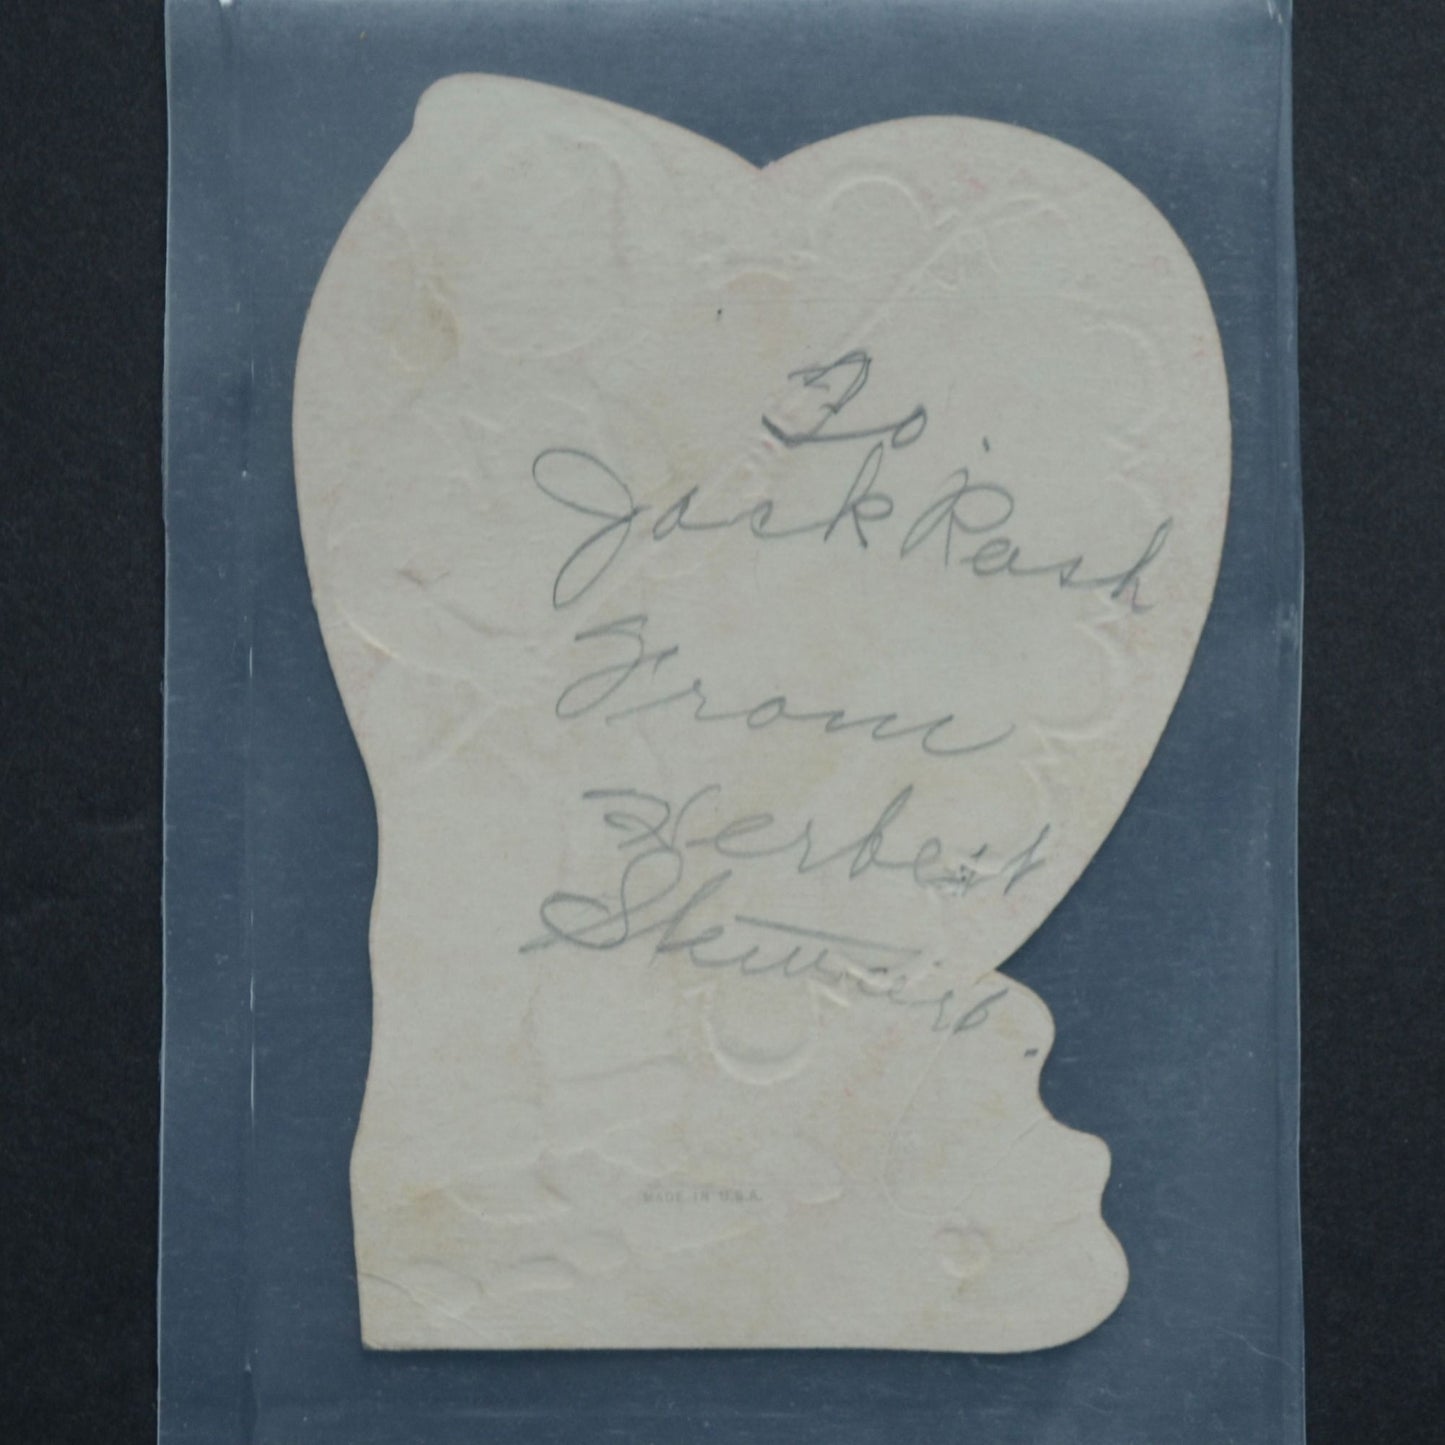 To
Jack Rash
From
Herbert
Stewart.
MADE IN U.S.A.